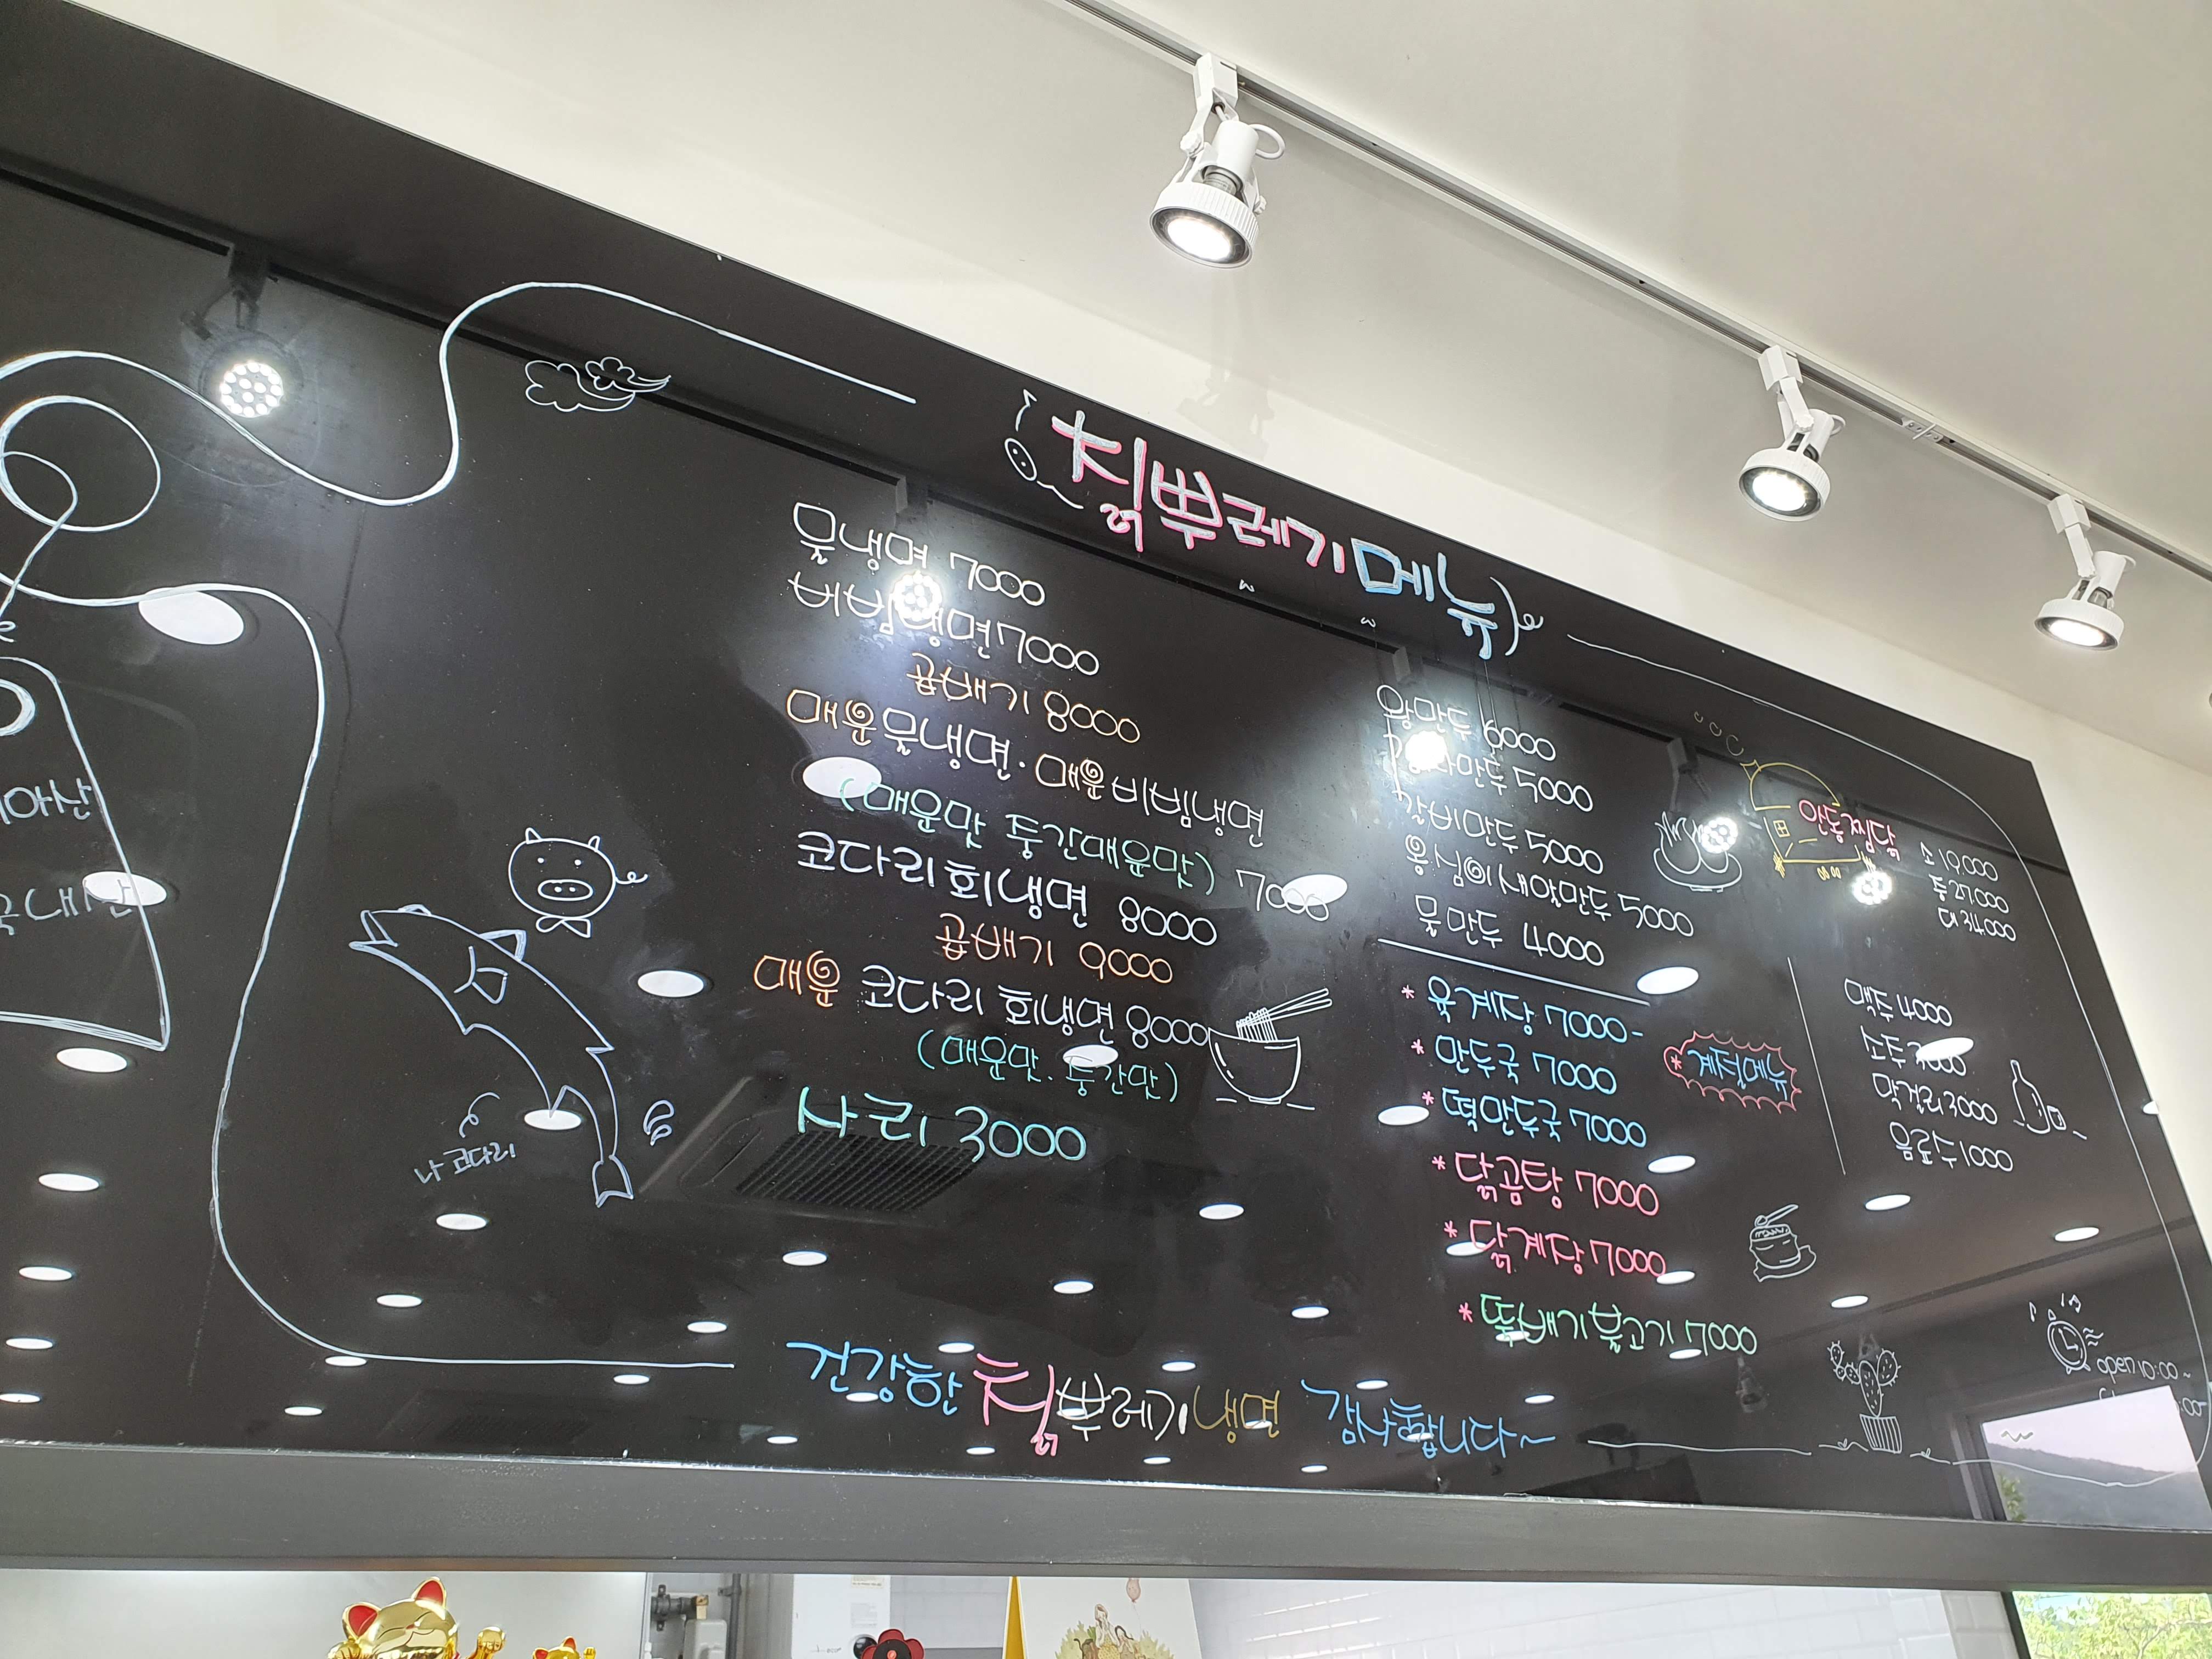 칡뿌레기메뉴
물냉면 7000
비빔냉면 7000
곱배기 8000
매운물냉면·매운비빔냉면
(매운맛 중간매운맛) 7000
코다리회냉면 8000
곱배기 9000
매운 코다리 회냉면 8000
(매운맛. 중간맛)
사리 3000
나 코다리
왕만두 6000
만두 5000
갈비만두 5000
옹심이새알만두 5000
물만두 4000
* 육계장 7000-
* 만두국 7000
* 떡만두국 7000
* 닭곰탕 7000
* 닭계장 7000
* 뚝배기불고기 7000
* 계절메뉴
안동찜닭
소 19,000
중 27,000
대 34,000
맥주 4000
소주
막걸리 3000
음료수 1000
open 10:00~
건강한 칡뿌레기냉면 감사합니다~